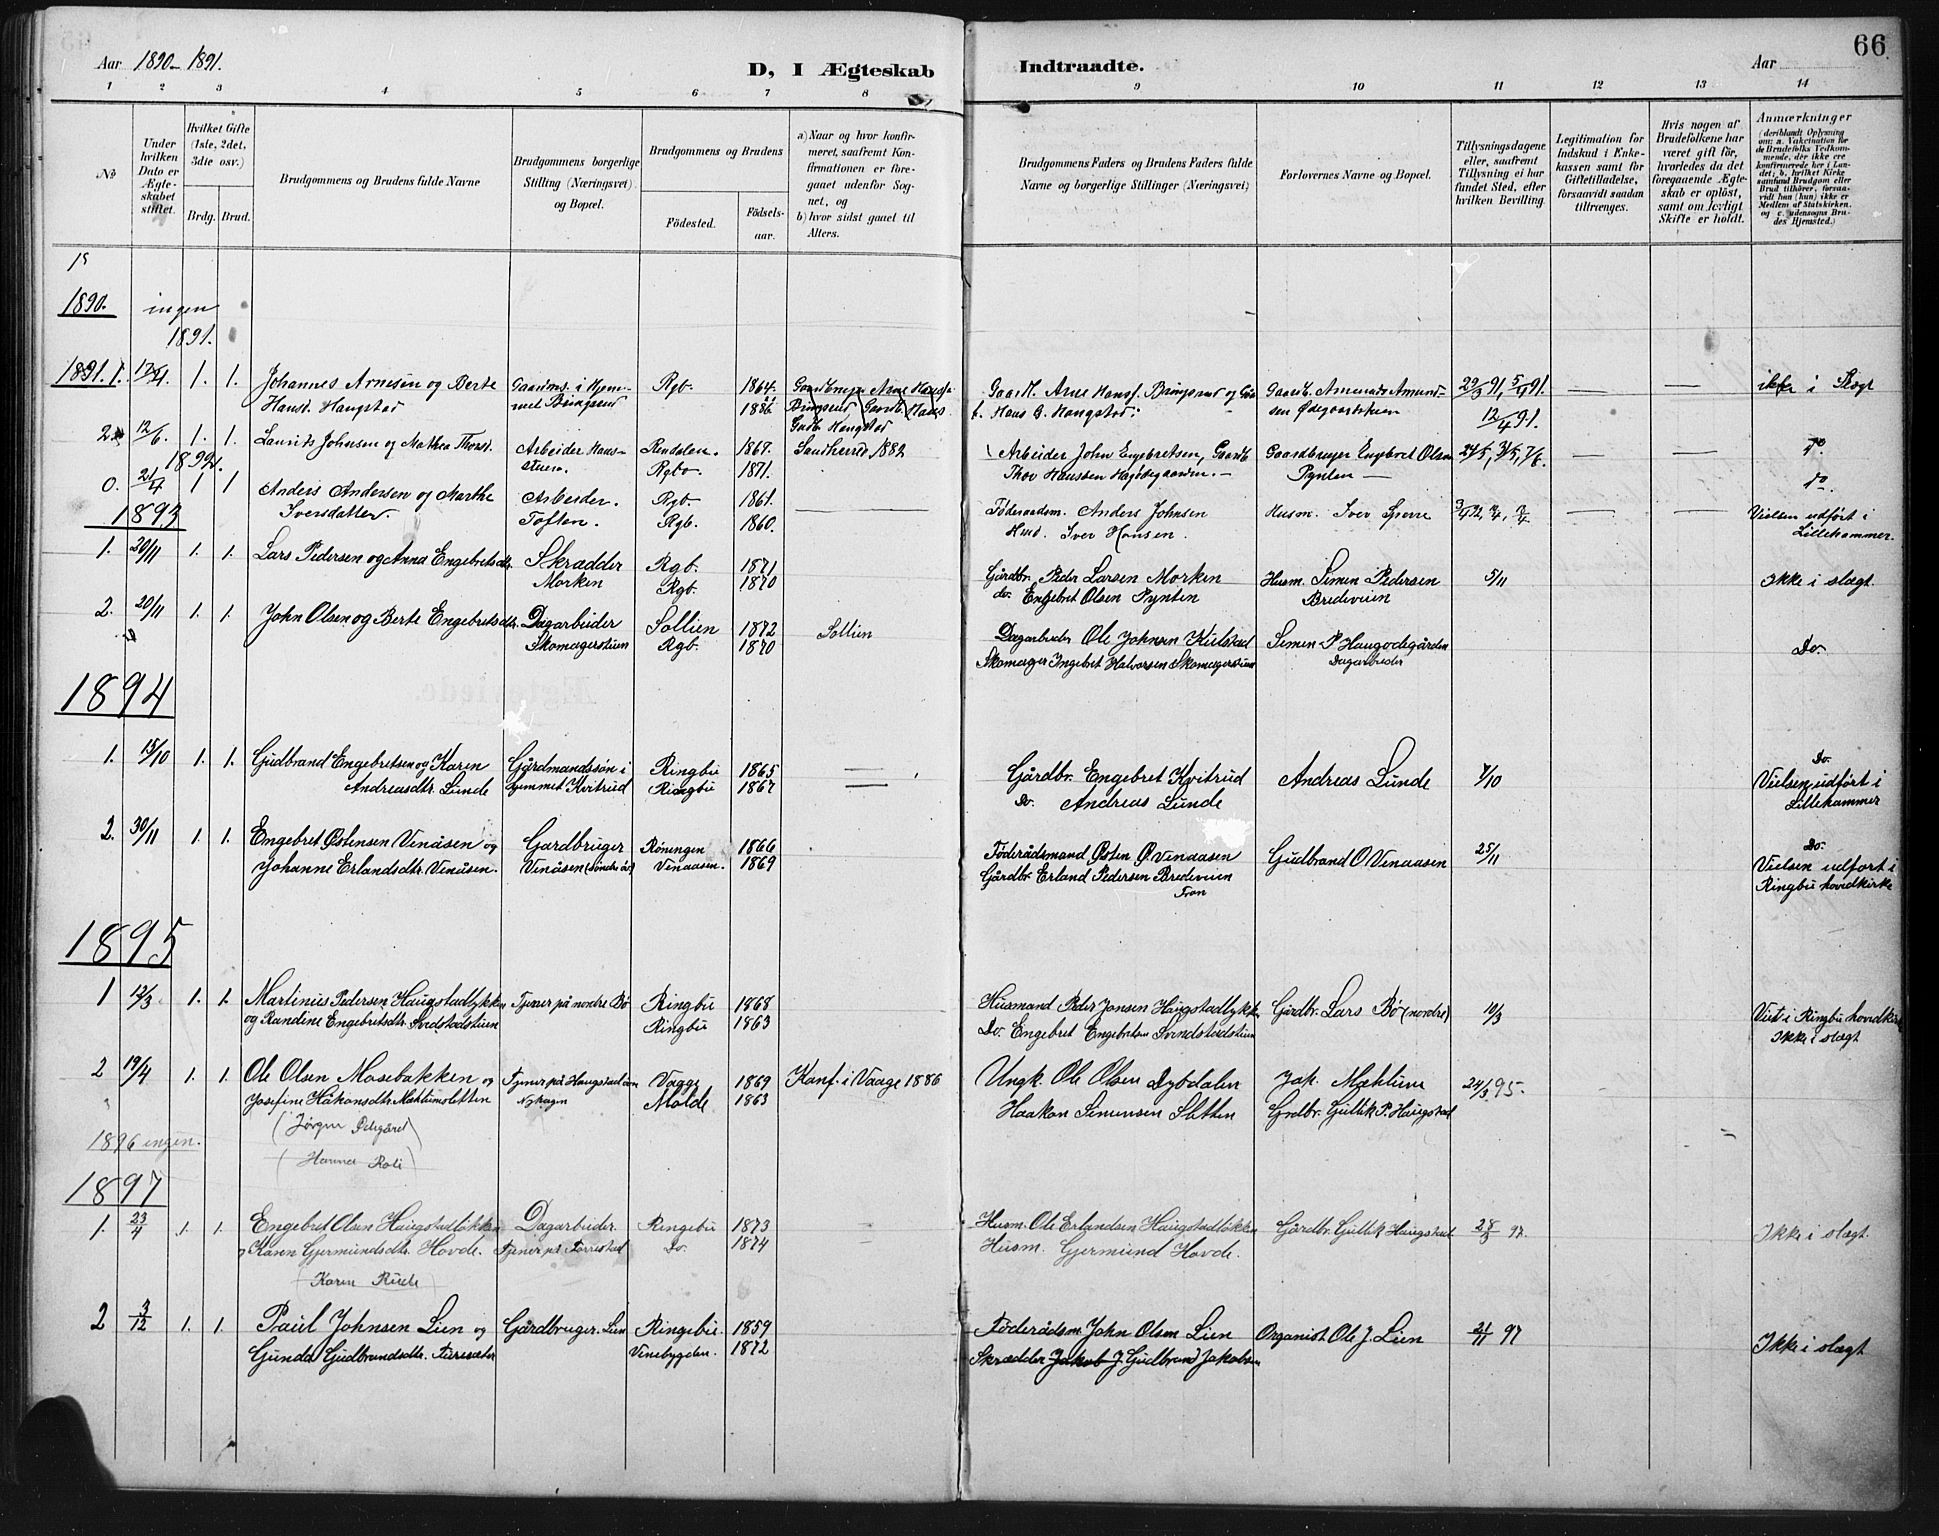 66
Aar 1890-1891.
D, I Ægteskab Indtraadte.
Aar
1 2 3 4 5 6 7 8 9 10 11 12 13 14
No
Under hvilken Dato er Ægteskabet stiftet.
Hvilket Gifte (1ste, 2det, 3die osv.)
Brdg. Brud.
Brudgommens og Brudens fulde Navne
Brudgommens borgerlige Stilling (Næringsvei) og Bopæl.
Brudgommens og Brudens
Fødested. Fødselsaar.
a) Naar og hvor konfirmeret, saafremt Konfirmationen er foregaaet udenfor Sognet, og
b) hvor sidst gaaet til Alters.
Brudgommens Faders og Brudens Faders fulde Navne og borgerlige Stillinger (Næringsvei)
Forlovernes Navne og Bopæl.
Tillysningsdagene eller, saafremt Tillysning ei har fundet Sted, efter hvilken Bevilling.
Legitimation for Indskud i Enkekassen samt for Giftetilladelse, forsaavidt saadan tiltrænges.
Hvis nogen af Brudefolkene har været gift før, hvorledes da det foregaaende Ægteskab er opløst, samt om lovligt Skifte er holdt.
Anmærkninger (deriblandt Oplysning om: a. Vakcination for de Brudefolks Vedkommende, der ikke ere konfirmerede her i Landet; b. hvilket Kirkesamfund Brudgom eller Brud tilhører, forsaavidt han (hun) ikke er Medlem af Statskirken, og c. udensogns Brudes Hjemsted.)
1890. ingen
1891.
1891. 1. 1. 1. Johannes Arnesen og Berte Rgb. 1864. Gaardm. Arne Hans. Bringsrud ikke i Slægt
Hansd. Haugstad 1886 12/4 91.
2. 12/6. 1. 1. Laurits Johnsen og Mathea Thorsd. Arbeider Rendalen. 1867. Sandherred 1882 Arbeider John Engebretsen, Gaardbruger Engebret Olsen 24/5, 31/5, 7/6. do
1892. 1871. Pynten
0. 1 1 Anders Andersen og Marthe Arbeider. Rgb. 1861. Føderaadsm. Anders Johnsen Husm. Iver Sperre Vielsen udført i
Iversdatter. Toften. Rgb. 1860. Husd. Iver Hansen. Lillehammer.
1893
1. 20/11 1. 1. Lars Pedersen og Anna Engebretsdtr. Skrædder Rgb. 1871 Gårdbr. Peder Larsen Morken Husm. Simen Pedersen 5/11 Ikke i slægt.
Morken Rgb. 1870 do. Engebret Olsen Pynten Bredeveien
2. 20/11 1. 1. John Olsen og Berte Engebretsdtr. Dagarbeider Sollien 1872 Sollien Dagarbeider Ole Johnsen Kielstad Simen P Haugodegården Do.
Skomagerstuen Rgb. 1870 Skomager Ingebret Halvorsen Skomagerstuen Dagarbeider
1894
1. 15/10 1. 1. Gudbrand Engebretsen og Karen Gårdmandssøn i Ringbu 1865 Gårdbr. Engebret Kvitrud Andreas Lunde 7/10 Do.
Andreasdtr. Lunde hjemmet Kvitrud Ringbu 1867 Do. Andreas Lunde Vielsen udført i Lillehammer
2. 30/11 1. 1. Engebret Østensen Venåsen og Gardbruger Røningen 1866 Føderådsmand Østen Ø. Venaasen Gudbrand O Venaasen 25/11 Do.
Johanne Erlandsdtr. Venåsen. Venåsen Venaasen. 1869 Gårdbr. Erland Pedersen Bredeveien Vielsen udført i
Fron Ringbu hovedkirke
1895
1 12/3 1. 1. Martinus Pedersen Haugstadlykken Tjener på nordre Bø Ringbu 1868 Husmand Peder Jonsen Haugstadlykk Gårdbr. Lars Bø (nordre) 10/3 Viet i Ringbu hovedkirke
og Randine Engebretsdtr. Svedstadstuen Ringbu 1863 Do. Engebret Engebretsen Svendstadstuen Ikke i slægt
2 19/4 1. 1. Ole Olsen Mosebakken og Tjener på Haugstad Vagge 1869 Konf. i Vaage 1886 Ungk. Ole Olsen Dybdalen Jak. Mæhlum 24/3 95.
Josefine Håkonsdtr. Mæhlumsletten Molde 1863 Haakon Simensen Sletten Grdbr. Gullik P. Haugstad
(Jørgen Ødegård)
1896 ingen.
(Hanna Roli)
1897
1. 23/4 1. 1. Engebret Olsen Haugstadløkken Dagarbeider Ringebu 1873 Husm. Ole Erlandsen Haugstadløkken Gårdbr. Gullik Haugstad 28/3 97. Ikke i slægt.
Karen Gjermundsdtr. Hovde. Tjener på Forrestad Do. 1874 Husm. Gjermund Hovde.
(Karen Rude)
2 3/12 1. 1. Paul Johnsen Lien og Gårdbruger. Lien Ringebu. 1859 Føderådsm. John Olsen Lien Organist Ole J. Lien 21/11 97 Ikke i slægt
Gunda Gudbrandsdtr. Venebygden. 1872 Skrædder Jakob J. Gudbrand Jakobsen